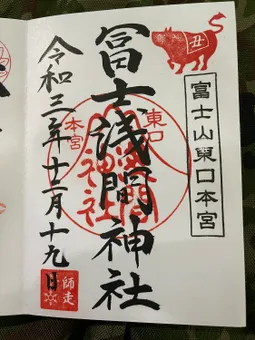 富士山東口本宮
丑
冨士浅間神社
東口
本宮
令和三年十二月十九日
師走